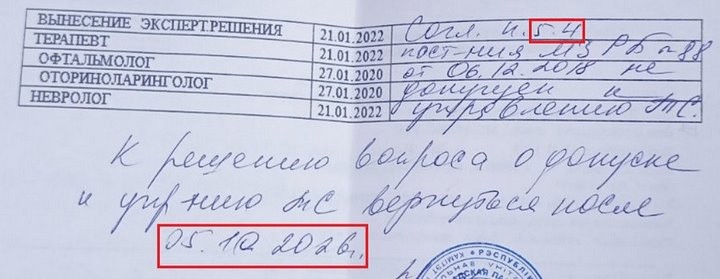 ВЫНЕСЕНИЕ ЭКСПЕРТ.РЕШЕНИЯ 21.01.2022 Согл. п. 5.4
ТЕРАПЕВТ 21.01.2022 пост-ния МЗ РБ №88
ОФТАЛЬМОЛОГ 27.01.2020 от 06.12.2018 не
ОТОРИНОЛАРИНГОЛОГ 27.01.2020 допущен к
НЕВРОЛОГ 21.01.2022 управлению ТС.
К решению вопроса о допуске
к упр-нию ТС вернуться после
05.10.2026г.
РЭСПУБЛІК